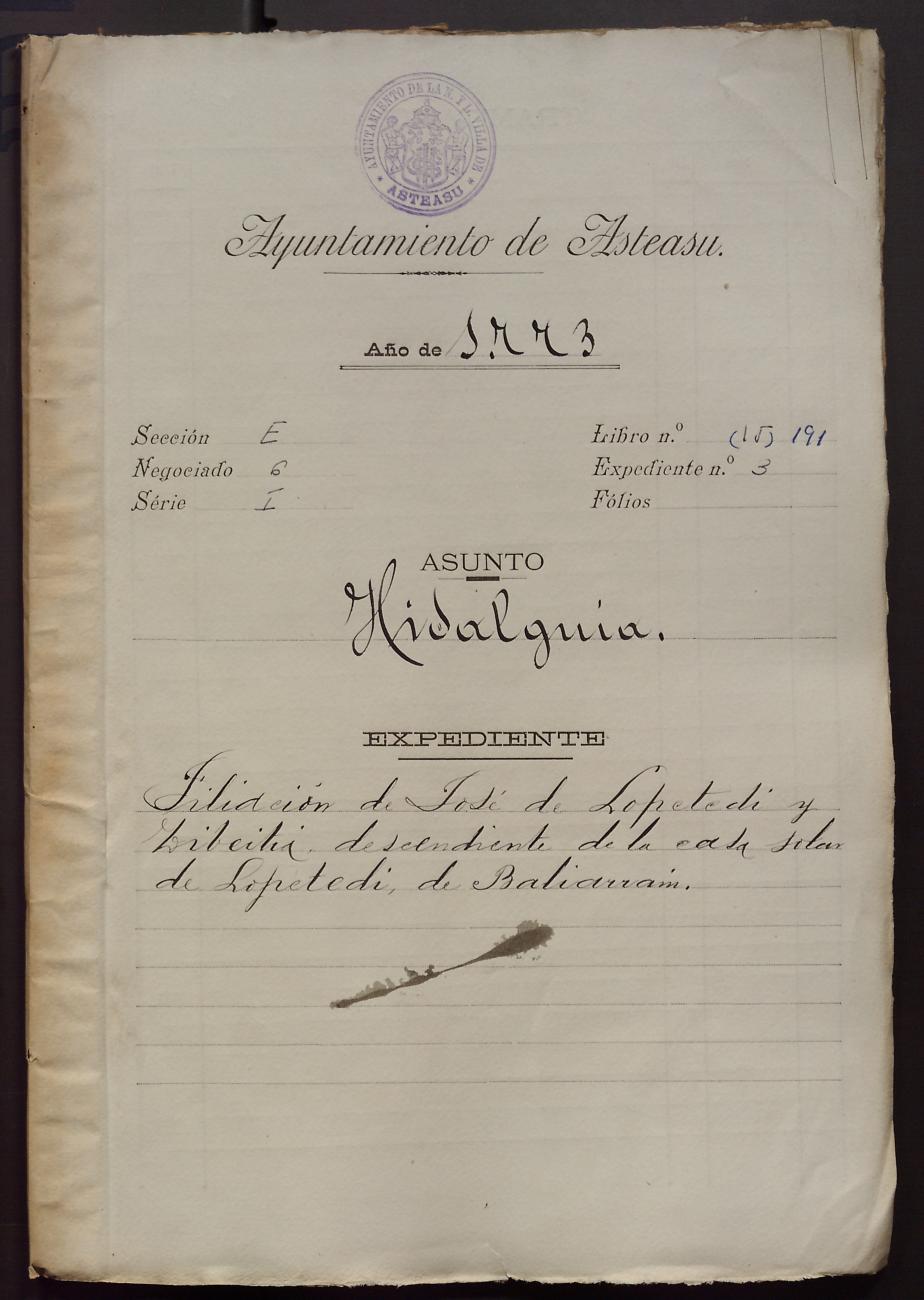 AYUNTAMIENTO DE LA N. Y L. VILLA DE
* ASTEASU *
Ayuntamiento de Asteasu.
Año de 1773
Sección E
Negociado 6
Série I
Libro n.º (15) 191
Expediente n.º 3
Fólios
ASUNTO
Hidalguia.
EXPEDIENTE
Filiación de José de Lopetedi y
descendiente de la casa solar
de Lopetedi, de Baliarrain.